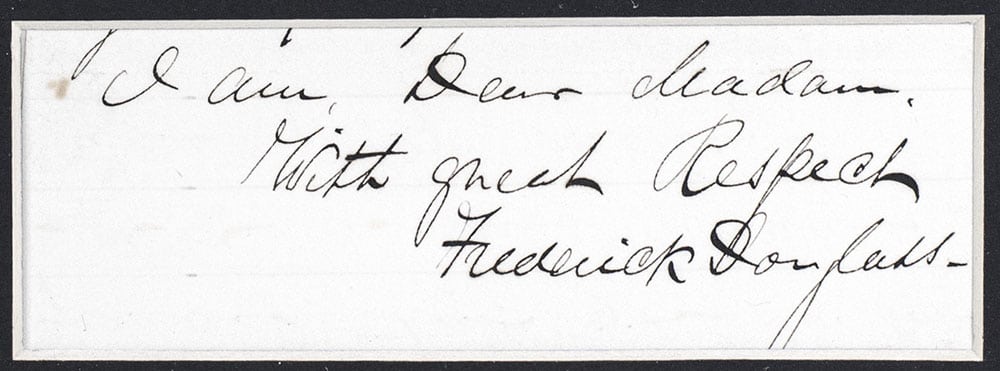 I am, Dear Madam.
With great Respect
Frederick Douglass-